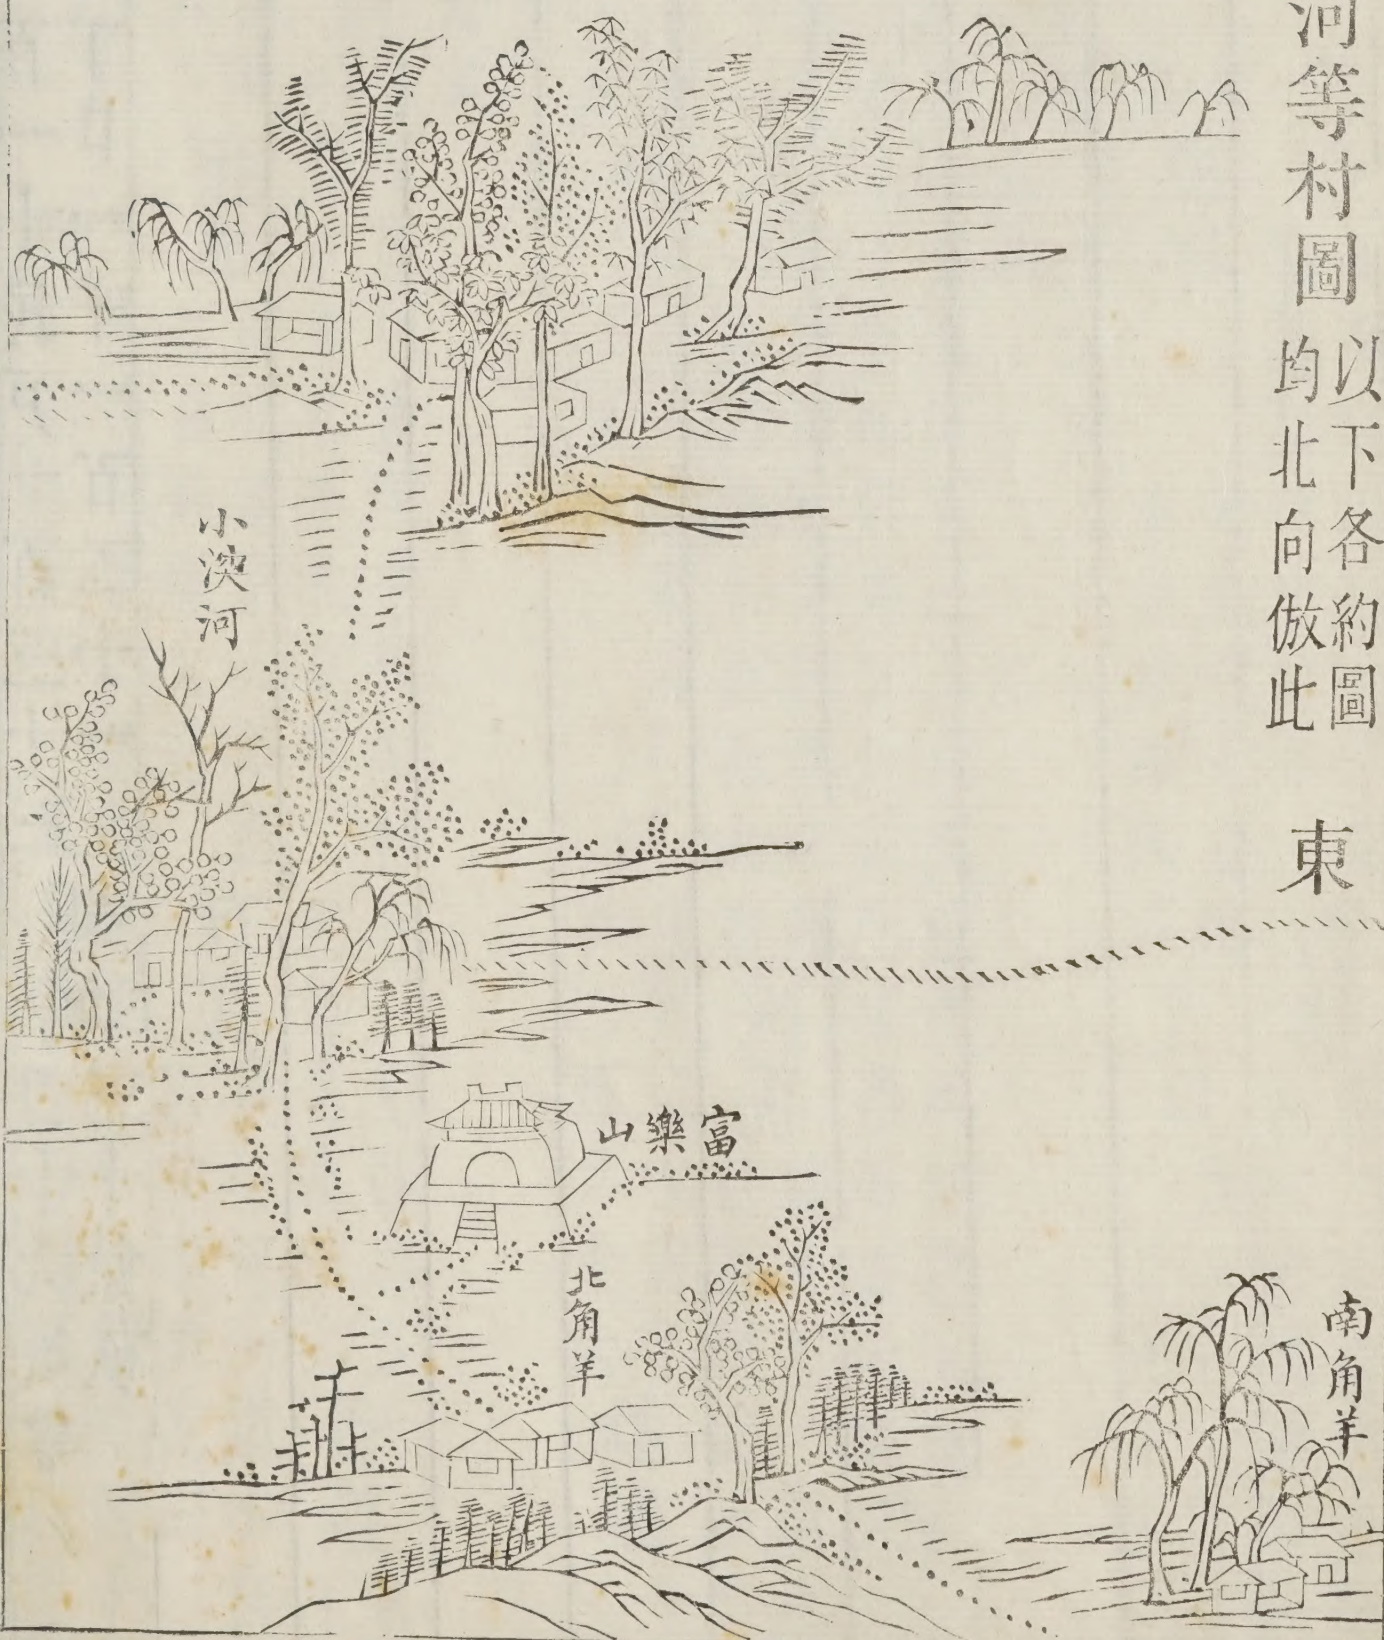 河等村圖
以下各約圖
均北向倣此
東
小河
富樂山
北角羊
南角羊